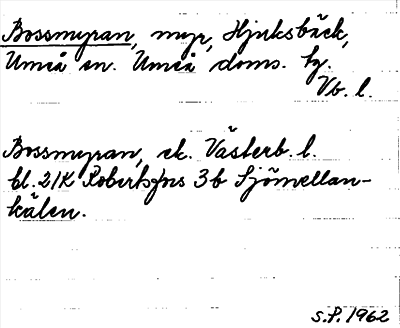 Bossmyran, myr, Hjuksbäck,
Umeå sn. Umeå doms. hg.
Vb. l.
Bossmyran, ek. Västerb. l.
bl. 21K Robertsfors 3b Sjömellan-
kälen.
S.P. 1962